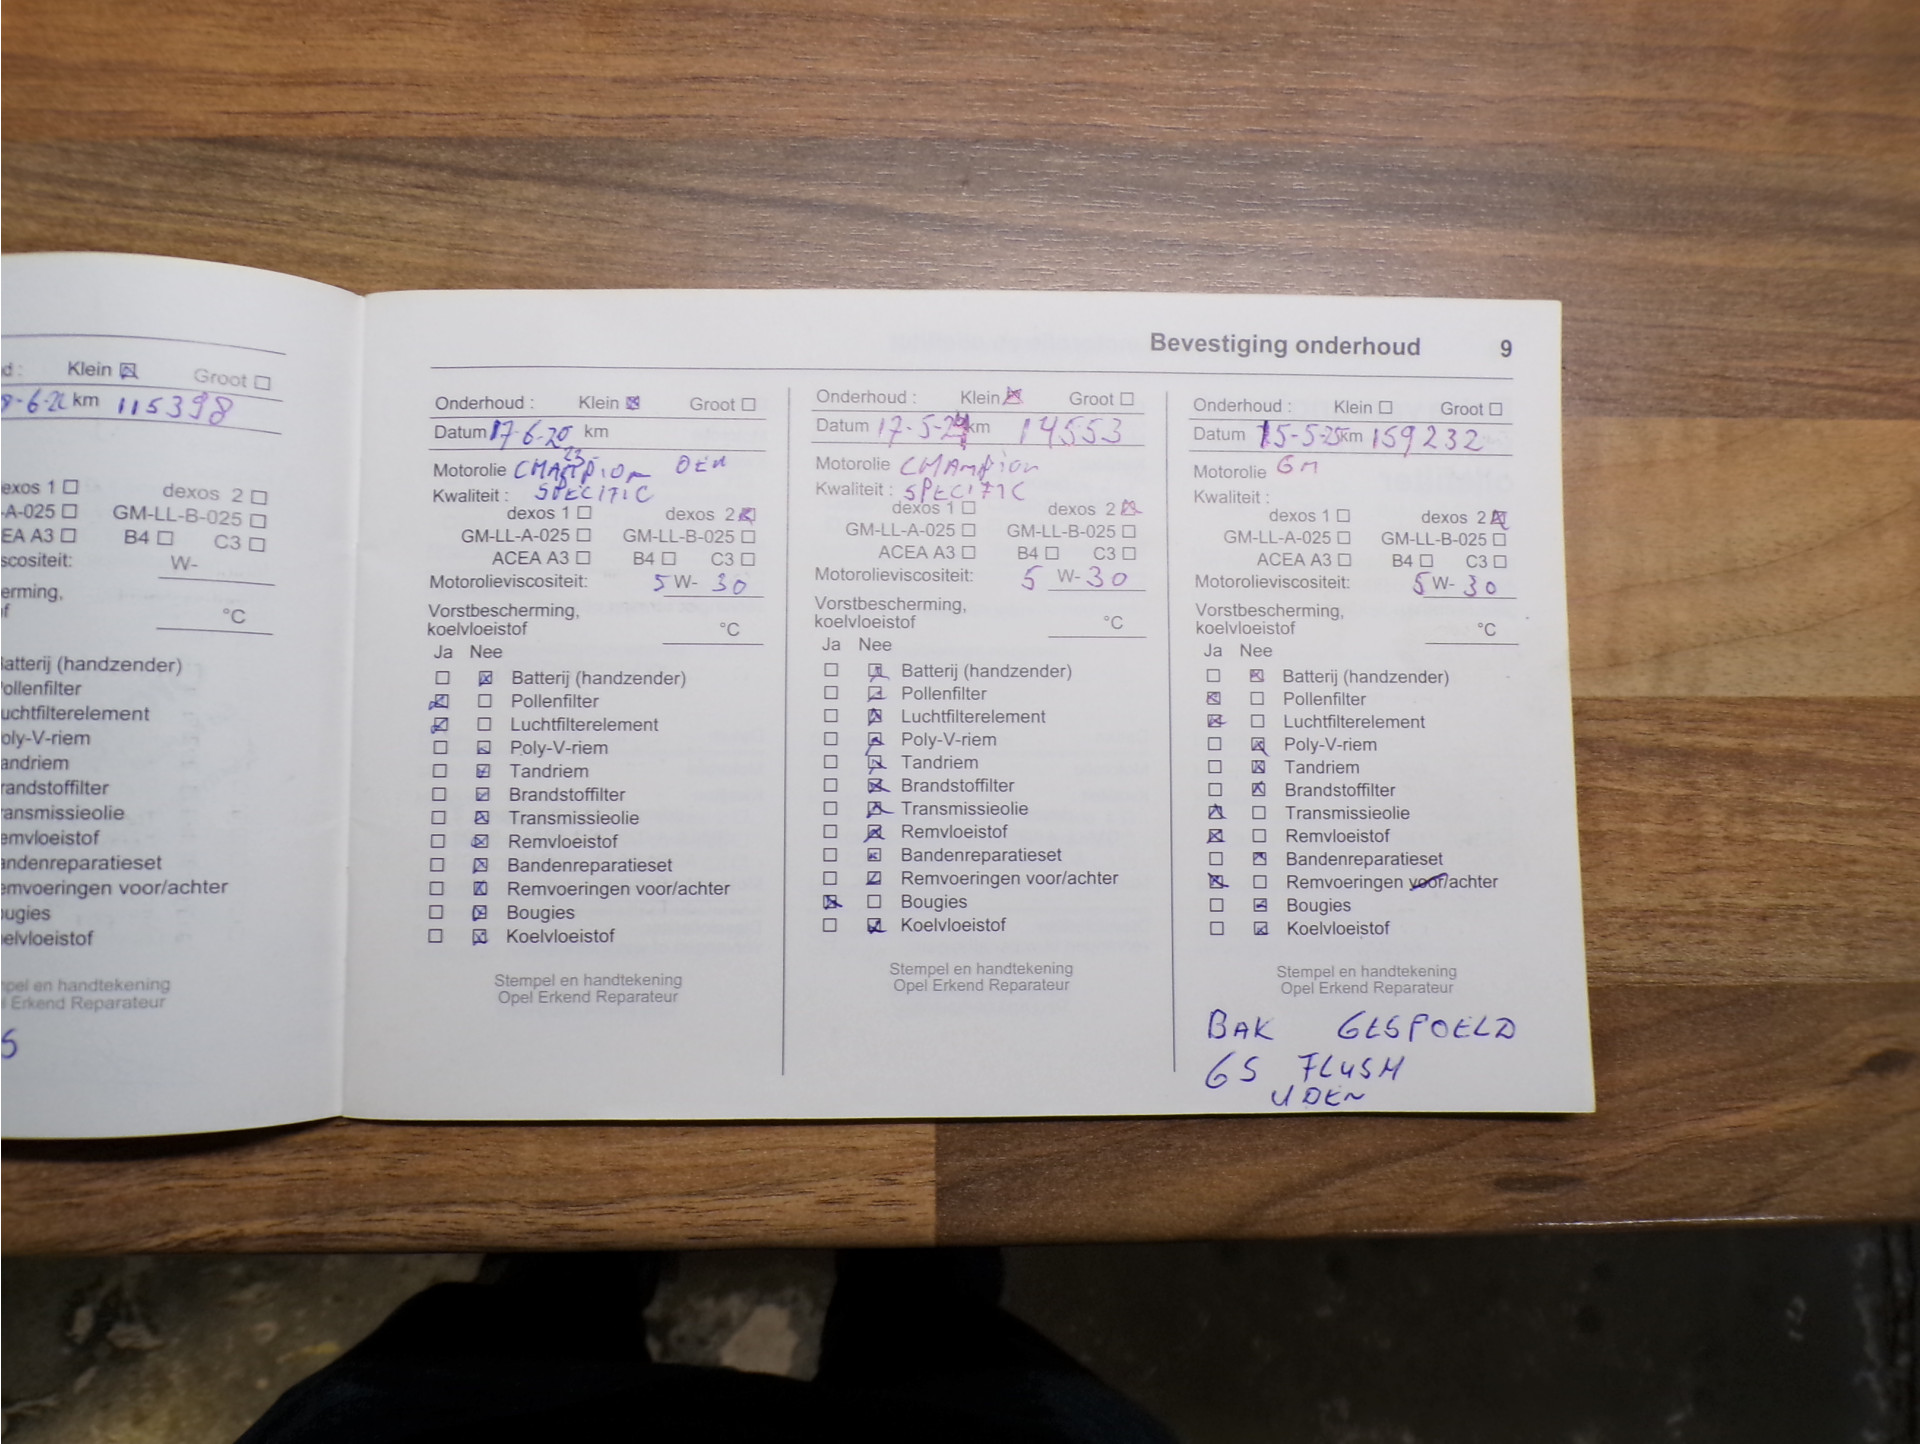 d : Klein Groot
8-6-22 km 115398
exos 1 dexos 2
-A-025 GM-LL-B-025
EA A3 B4 C3
scositeit: W-
erming,
f °C
atterij (handzender)
ollenfilter
uchtfilterelement
oly-V-riem
andriem
randstoffilter
ansmissieolie
emvloeistof
andenreparatieset
emvoeringen voor/achter
ougies
elvloeistof
pel en handtekening
l Erkend Reparateur
S
Bevestiging onderhoud 9
Onderhoud : Klein Groot
Datum 17-6-20 km
23
Motorolie CHAMPION OEM
Kwaliteit : SPECIFIC
dexos 1 dexos 2
GM-LL-A-025 GM-LL-B-025
ACEA A3 B4 C3
Motorolieviscositeit: 5 W- 30
Vorstbescherming,
koelvloeistof °C
Ja Nee
Batterij (handzender)
Pollenfilter
Luchtfilterelement
Poly-V-riem
Tandriem
Brandstoffilter
Transmissieolie
Remvloeistof
Bandenreparatieset
Remvoeringen voor/achter
Bougies
Koelvloeistof
Stempel en handtekening
Opel Erkend Reparateur
Onderhoud : Klein Groot
Datum 17-5-24 km 14553
Motorolie CHAMPION
Kwaliteit : SPECIFIC
dexos 1 dexos 2
GM-LL-A-025 GM-LL-B-025
ACEA A3 B4 C3
Motorolieviscositeit: 5 W- 30
Vorstbescherming,
koelvloeistof °C
Ja Nee
Batterij (handzender)
Pollenfilter
Luchtfilterelement
Poly-V-riem
Tandriem
Brandstoffilter
Transmissieolie
Remvloeistof
Bandenreparatieset
Remvoeringen voor/achter
Bougies
Koelvloeistof
Stempel en handtekening
Opel Erkend Reparateur
Onderhoud : Klein Groot
Datum 15-5-25 km 159232
Motorolie GM
Kwaliteit :
dexos 1 dexos 2
GM-LL-A-025 GM-LL-B-025
ACEA A3 B4 C3
Motorolieviscositeit: 5 W- 30
Vorstbescherming,
koelvloeistof °C
Ja Nee
Batterij (handzender)
Pollenfilter
Luchtfilterelement
Poly-V-riem
Tandriem
Brandstoffilter
Transmissieolie
Remvloeistof
Bandenreparatieset
Remvoeringen voor/achter
Bougies
Koelvloeistof
Stempel en handtekening
Opel Erkend Reparateur
BAK GESPOELD
GS FLUSH
UDEN